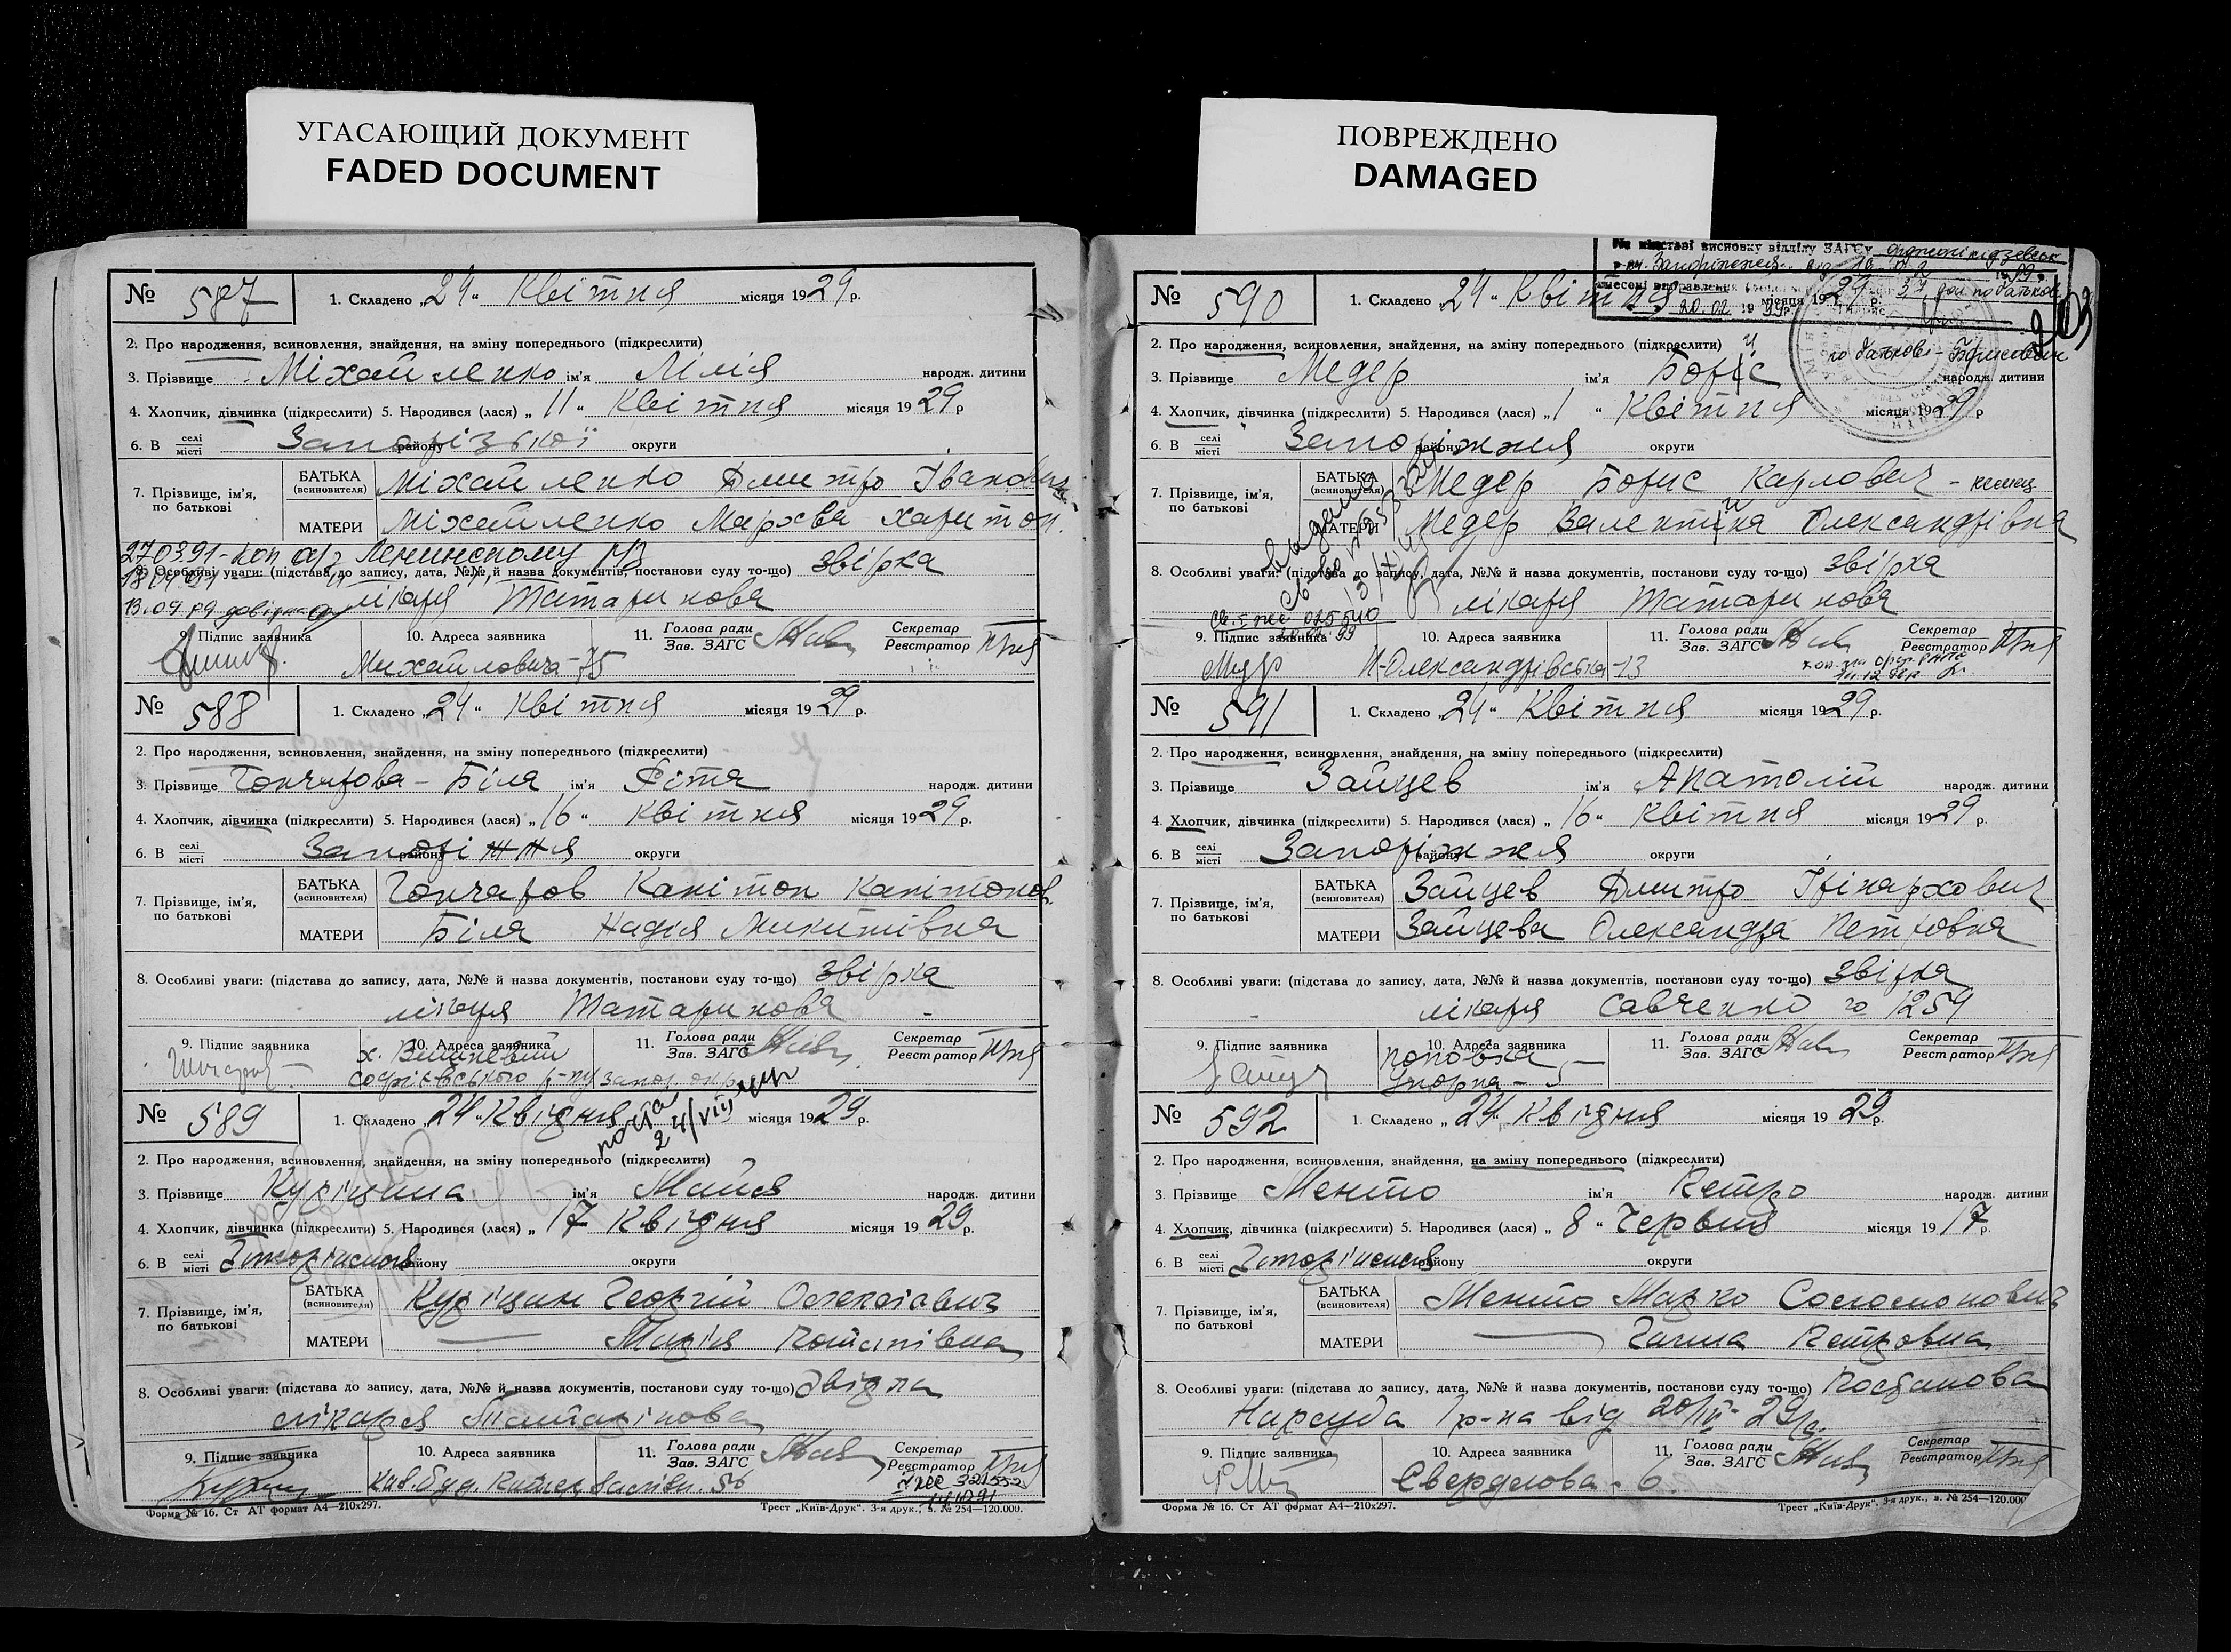 УГАСАЮЩИЙ ДОКУМЕНТ
FADED DOCUMENT
ПОВРЕЖДЕНО
DAMAGED
№ 587
1. Складено „24“ Квітня місяця 1929 р.
2. Про народження, всиновлення, знайдення, на зміну попереднього (підкреслити)
3. Прізвище Міхайленко ім'я Лілія народж. дитини
4. Хлопчик, дівчинка (підкреслити) 5. Народився (лася) „11“ Квітня місяця 1929 р
6. В селі місті Запорізької району округи
7. Прізвище, ім'я, по батькові
БАТЬКА (всиновителя) Міхайленко Дмитро Іванович
МАТЕРИ Міхайленко Мархва Харитон.
270391- коп Ленинскому
8. Особливі уваги: (підстава до запису, дата, №№ й назва документів, постанови суду то-що) звірка
13.09.89
лікаря Татаринова
9. Підпис заявника
10. Адреса заявника
Михайловича-75
11. Голова ради Зав. ЗАГС
Секретар Реєстратор
№ 588
1. Складено „24“ Квітня місяця 1929 р.
2. Про народження, всиновлення, знайдення, на зміну попереднього (підкреслити)
3. Прізвище Гончарова - Біла ім'я Ріта народж. дитини
4. Хлопчик, дівчинка (підкреслити) 5. Народився (лася) „16“ Квітня місяця 1929 р.
6. В селі місті Запоріжжя району округи
7. Прізвище, ім'я, по батькові
БАТЬКА (всиновителя) Гончаров Капітон Капітонов.
МАТЕРИ Біла Надія Микитівна
8. Особливі уваги: (підстава до запису, дата, №№ й назва документів, постанови суду то-що) звірка
лікаря Татаринова
9. Підпис заявника
10. Адреса заявника
х. Вишневий
Софіївського р-ну запор. окр.
11. Голова ради Зав. ЗАГС
Секретар Реєстратор
№ 589
1. Складено „24“ Квітня місяця 1929 р.
24/VIII
2. Про народження, всиновлення, знайдення, на зміну попереднього (підкреслити)
3. Прізвище Куріцина ім'я Майя народж. дитини
4. Хлопчик, дівчинка (підкреслити) 5. Народився (лася) „17 Квітня місяця 1929 р.
6. В селі місті Запоріжжя району округи
7. Прізвище, ім'я, по батькові
БАТЬКА (всиновителя) Куріцин Георгій Олексіович
МАТЕРИ — Марія Потапівна
8. Особливі уваги: (підстава до запису, дата, №№ й назва документів, постанови суду то-що) Звірка
лікаря Татарінова
9. Підпис заявника
10. Адреса заявника
56
11. Голова ради Зав. ЗАГС
Секретар Реєстратор
Форма № 16. Ст АТ формат А4—210х297.
Трест „Київ-Друк“. 3-я друк., з. № 254—120.000.
На підставі висновку відділу ЗАГСу
внесені виправлення
20.02 1999р.
по батькові - Борисович
203
№ 590
1. Складено „24“ Квітня місяця 1929 р.
2. Про народження, всиновлення, знайдення, на зміну попереднього (підкреслити)
3. Прізвище Медер ім'я Боріс народж. дитини
и
4. Хлопчик, дівчинка (підкреслити) 5. Народився (лася) „1“ Квітня місяця 1929 р
6. В селі місті Запоріжжя району округи
7. Прізвище, ім'я, по батькові
БАТЬКА (всиновителя) Медер Борис Карлович - немец
МАТЕРИ Медер Валентина Олександрівна
8. Особливі уваги: (підстава до запису, дата, №№ й назва документів, постанови суду то-що) звірка
лікаря Татаринова
9. Підпис заявника
10. Адреса заявника
Н-Олександрівська-13
11. Голова ради Зав. ЗАГС
Секретар Реєстратор
№ 591
1. Складено „24“ Квітня місяця 1929 р.
2. Про народження, всиновлення, знайдення, на зміну попереднього (підкреслити)
3. Прізвище Зайцев ім'я Анатолій народж. дитини
4. Хлопчик, дівчинка (підкреслити) 5. Народився (лася) „16“ Квітня місяця 1929 р.
6. В селі місті Запоріжжя району округи
7. Прізвище, ім'я, по батькові
БАТЬКА (всиновителя) Зайцев Дмитро Ірінархович
МАТЕРИ Зайцева Олександра Петровна
8. Особливі уваги: (підстава до запису, дата, №№ й назва документів, постанови суду то-що) звірка
лікаря Савченко 1259
9. Підпис заявника
10. Адреса заявника
поповка
5
11. Голова ради Зав. ЗАГС
Секретар Реєстратор
№ 592
1. Складено „24“ Квітня місяця 1929 р.
2. Про народження, всиновлення, знайдення, на зміну попереднього (підкреслити)
3. Прізвище Менто ім'я Петро народж. дитини
4. Хлопчик, дівчинка (підкреслити) 5. Народився (лася) „8“ Червня місяця 1917 р.
6. В селі місті Запоріжжя району округи
7. Прізвище, ім'я, по батькові
БАТЬКА (всиновителя) Менто Марко Соломонович
МАТЕРИ — Ганна Петровна
8. Особливі уваги: (підстава до запису, дата, №№ й назва документів, постанови суду то-що) Постанова
Нарсуда 1 р-на від 20/IV-29 р.
9. Підпис заявника
10. Адреса заявника
Свердлова - 6.
11. Голова ради Зав. ЗАГС
Секретар Реєстратор
Форма № 16. Ст АТ формат А4—210х297.
Трест „Київ-Друк“. 3-я друк., з. № 254—120.000